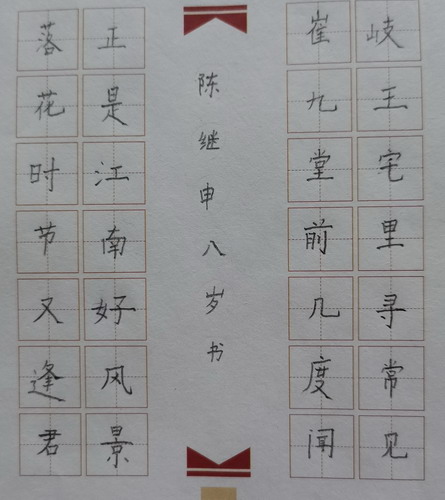 岐王宅里寻常见
崔九堂前几度闻
陈继申八岁书
正是江南好风景
落花时节又逢君